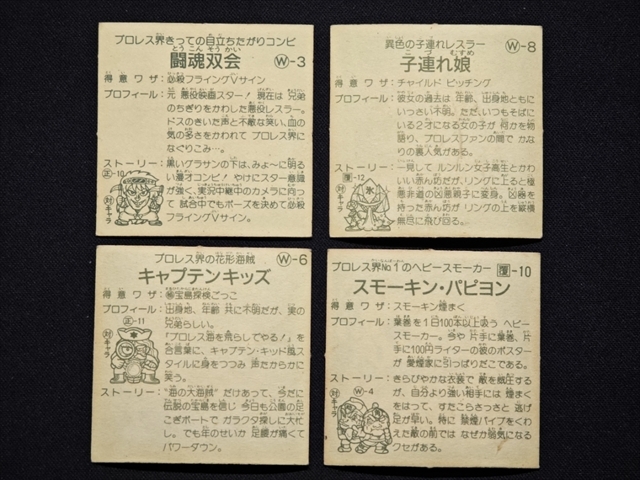 プロレス界きっての目立ちたがりコンビ
W-3
とうこんそうかい
闘魂双会
得意ワザ:必殺フライングVサイン
プロフィール:元 悪役映画スター!現在は 兄弟
のちぎりをかわした悪役レスラー。
ドスのきいた声と不敵な笑い、血の
気の多さをかわれて プロレス界に
なぐりこみ…。
ストーリー:黒いグラサンの下は、みょ〜に明る
い漫才コンビ!やけにスター意識
が強く、実況中継中のカメラに向っ
て 試合中でもポーズを決めて必殺
フライングVサイン。
正-10
対キャラ
異色の子連れレスラー
W-8
こづれむすめ
子連れ娘
得意ワザ:チャイルド ピッチング
プロフィール:彼女の過去は 年齢、出身地ともに
いっさい不明。ただ、いつもそばに
いる2才になる女の子が 何かを物
語り、プロレスファンの間で かな
りの裏人気がある。
ストーリー:一見して ルンルン女子高生とかわ
いい赤ん坊だが、リングに上ると極
悪非道の凶悪親子に変身。凶器を
持った赤ん坊が リングの上を縦横
無尽に飛び回る。
復-12
対キャラ
氷
プロレス界の花形海賊
W-6
キャプテンキッズ
得意ワザ:㊙宝島探検ごっこ
プロフィール:出身地、年齢 共に不明だが、実の
兄弟らしい。
「プロレス海を荒らしてやる!」を
合言葉に、キャプテン・キッド風ス
タイルに身をつつみ 声たからかに
笑う。
ストーリー:“海の大海賊”だけあって、今だに
伝説の宝島を信じ 今日も公園の足
こぎボートで ガラクタ探しに大忙
し。でも年のせいか 足腰が痛くて
パワーダウン。
正-11
対キャラ
プロレス界No.1のヘビースモーカー
復-10
スモーキン・パピヨン
得意ワザ:スモーキン煙まく
プロフィール:葉巻を1日100本以上吸う ヘビー
スモーカー。今や 片手に葉巻、片
手に100円ライターの彼のポスター
が 愛煙家に引っぱりだこである。
ストーリー:きらびやかな衣装で 敵を威圧する
が、自分より強い相手には 煙まく
をはって、すたこらさっさと 逃げ
足が早い。特に 禁煙パイプをくわ
えた敵の前では なぜか弱気になる
クセがある。
W-4
対キャラ